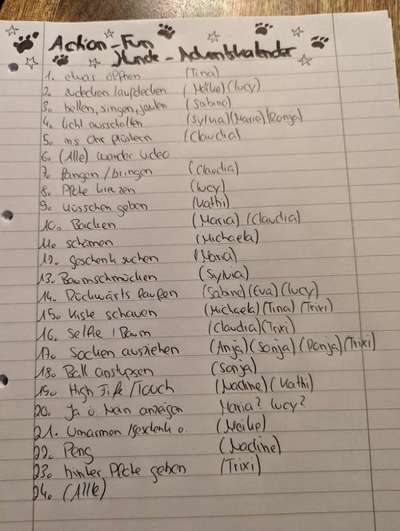 Action-Fun
Hunde-Adventskalender
1. etwas öffnen (Tina)
2. zudecken (Meike) (Lucy)
3. bellen, singen, (Sabine)
4. Licht ausschalten (Sylvia) (Maria) (Ronja)
5. ins Ohr flüstern (Claudia)
6. (Alle) wander video
7. fangen / bringen (Claudia)
8. Pfote kreuzen (Lucy)
9. Küsschen geben (Kathi)
10. Backen (Maria) (Claudia)
11. schämen (Michaela)
12. geschenk suchen (Maria)
13. Baumschmücken (Sylvia)
14. Rückwärts laufen (Sabine) (Eva) (Lucy)
15. Kiste schauen (Michaela) (Tina) (Trixi)
16. Selfie / Baum (Claudia) (Trixi)
17. Socken ausziehen (Anja) (Sonja) (Ronja) (Trixi)
18. Ball anstupsen (Sonja)
19. High Fife / Touch (Nadine) (Kathi)
20. Ja o Nein anzeigen Maria? Lucy?
21. Umarmen / geschenk o. (Meike)
22. Peng (Nadine)
23. hinter Pfote geben (Trixi)
24. (Alle)